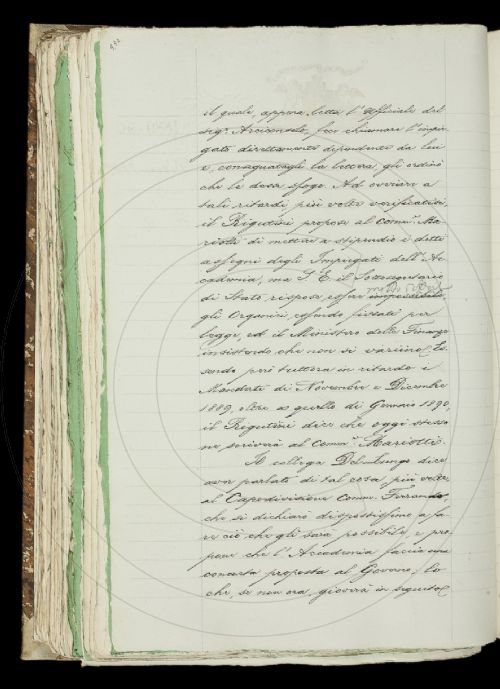 432
il quale, appena letta l'Officiale del
sigr. Arciconsolo, fece chiamare l'impie-
gato direttamente dipendente da lui
e, consegnatagli la lettera, gli ordinò
che le desse sfogo. Ad ovviare a
tali ritardi, più volte verificatisi,
il Rigutini propose al Comm. Ma-
riotti di mettere a stipendio i detti
assegni degli Impiegati dell'Ac-
cademia, ma S. E. il Sottosegretario
di Stato rispose esser
gli Organici, essendo fissati per
legge, ed il Ministero delle Finanze
insistendo che non si variino. Es-
sendo però tuttora in ritardo i
Mandati di Novembre e Dicembre
1889, oltre a quello di Gennaio 1890,
il Rigutini dice che oggi stesso
ne scriverà al Comm. Mariotti.
Il collega Del Lungo dice
aver parlato di tal cosa, più volte,
al Capodivisione Comm. Ferrando,
che si dichiarò dispostissimo a fa-
re ciò che gli sarà possibile, e pro-
pone che l'Accademia faccia una
concreta proposta al Governo; lo
che, se non ora, gioverà in seguito